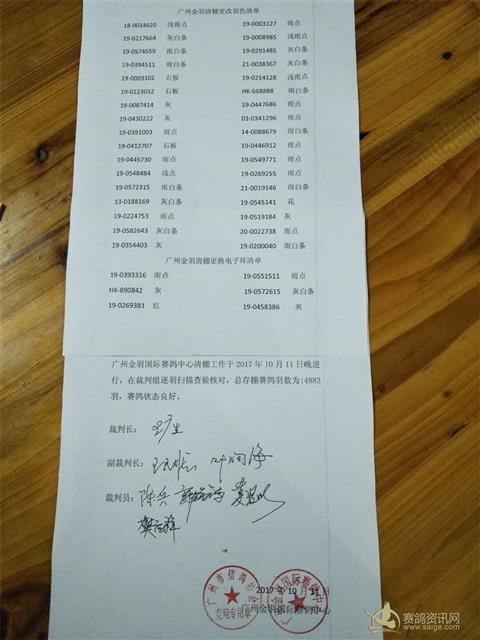 广州金羽清棚更改羽色清单
18-0014620 浅雨点 19-0003127 雨点
19-0217664 灰白条 19-0008985 浅雨点
19-0574659 雨白条 19-0291485 灰白条
19-0394511 雨白条 21-0038367 灰白条
19-0003102 石板 19-0214128 浅雨点
19-0223032 石板 HK-668888 雨白条
19-0087414 灰 19-0447686 雨点
19-0430222 灰 03-0341296 雨点
19-0391003 雨点 14-0088679 雨白条
19-0412707 石板 19-0446912 雨点
19-0445730 雨点 19-0549771 雨点
19-0548484 浅点 19-0269255 雨点
19-0572315 雨白条 21-0019146 雨白条
13-0188169 灰白条 19-0545141 花
19-0224753 雨点 19-0519184 灰
19-0582643 灰白条 20-0022738 雨点
19-0354403 灰 19-0200040 雨白条
广州金羽清棚更换电子环清单
19-0393316 雨点 19-0551511 雨点
HK-890842 灰 19-0572615 灰白条
19-0269381 红 19-0458386 灰
广州金羽国际赛鸽中心清棚工作于2017年10月11日晚进
行，在裁判组逐羽扫描查验核对，总存棚赛鸽羽数为:4883
羽，赛鸽状态良好。
裁判长：
副裁判长：
裁判员：陈兵
2017年10月11日
广州金羽国际赛鸽中心
广州市信鸽协会
竞翔专用章
赛鸽资讯网
www.saige.com